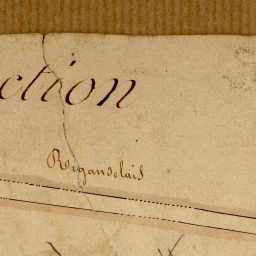 ction
Regandelais